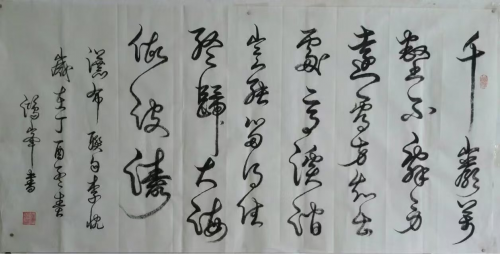 千巖萬
壑不辭勞
遠看方知出
處高溪澗
豈能留得住
終歸大海
做波濤
瀑布聯句李忱
歲在丁酉春
峯書